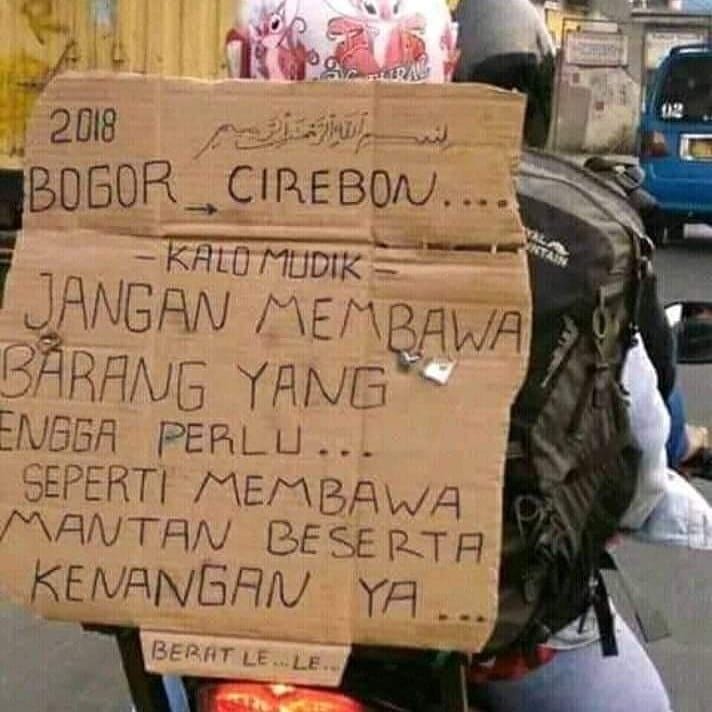 2018
بسم الله الرحمن الرحيم
BOGOR → CIREBON....
- KALO MUDIK -
JANGAN MEMBAWA
BARANG YANG
ENGGA PERLU...
SEPERTI MEMBAWA
MANTAN BESERTA
KENANGAN YA ...
BERAT LE...LE...
02